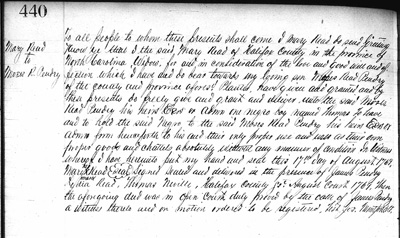 440
Mary Read
to
Moses R. Pendry
To all people to whom these presents shall come I Mary Read do send Greeting
Know ye that I the said Mary Read of Halifax County in the province of
North Carolina Widow, for and in consideration of the love and Good will and af-
fection which I have and do bear towards my loving son Moses Read Pendry
of the county and province aforesd have given and granted and by
these presents do freely give and grant and deliver unto the said Moses
Read Pendry his heirs Exrs or Admrs one negro boy named Thomas To have
and to hold the said negro to the said Moses Read Pendry his heirs Exrs or
Admrs from henceforth to his and their only proper use and uses as their own
proper goods and chattels absolutely without any manner of condition In Witness
whereof I have hereunto put my hand and seal this 17th day of August 176
Mary Read Seal Signed sealed and delivered in the presence of James Pendry
Lydia Read, Thomas Neville, Halifax County Ss August Court 1764. Then
the aforegoing deed was in open Court duly proved by the oath of James Pendry
a witness thereto and on motion ordered to be registered, Test Jos. Montfort